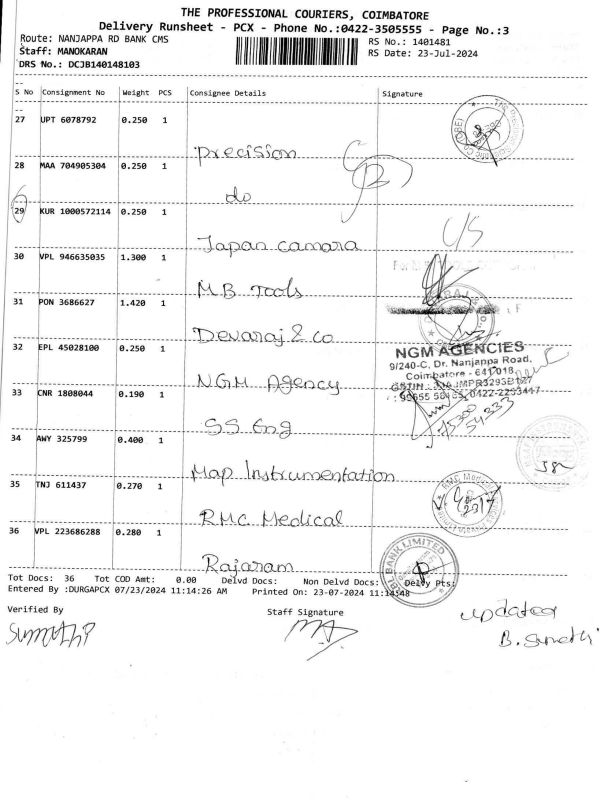 THE PROFESSIONAL COURIERS, COIMBATORE
Delivery Runsheet - PCX - Phone No.:0422-3505555 - Page No.:3
Route: NANJAPPA RD BANK CMS
RS No.: 1401481
Staff: MANOKARAN
RS Date: 23-Jul-2024
DRS No.: DCJB140148103
S No Consignment No Weight PCS Consignee Details Signature
27 UPT 6078792 0.250 1
Precision
28 MAA 704905304 0.250 1
do
29 KUR 1000572114 0.250 1
Japan camara
30 VPL 946635035 1.300 1
MB Tools
31 PON 3686627 1.420 1
Devaraj & co
32 EPL 45028100 0.250 1
NGM AGENCIES
9/240-C, Dr. Nanjappa Road,
Coimbatore - 641 018
NGM Agency
33 CNR 1808044 0.190 1
SS Eng
34 AWY 325799 0.400 1
Map Instrumentation
35 TNJ 611437 0.270 1
RMC Medical
36 VPL 223686288 0.280 1
BANK LIMITED
Rajaram
Tot Docs: 36 Tot COD Amt: 0.00 Delvd Docs: Non Delvd Docs: Delvy Pts:
Entered By :DURGAPCX 07/23/2024 11:14:26 AM Printed On: 23-07-2024 11:14:48
Verified By
Staff Signature
updated
B. Sumathi